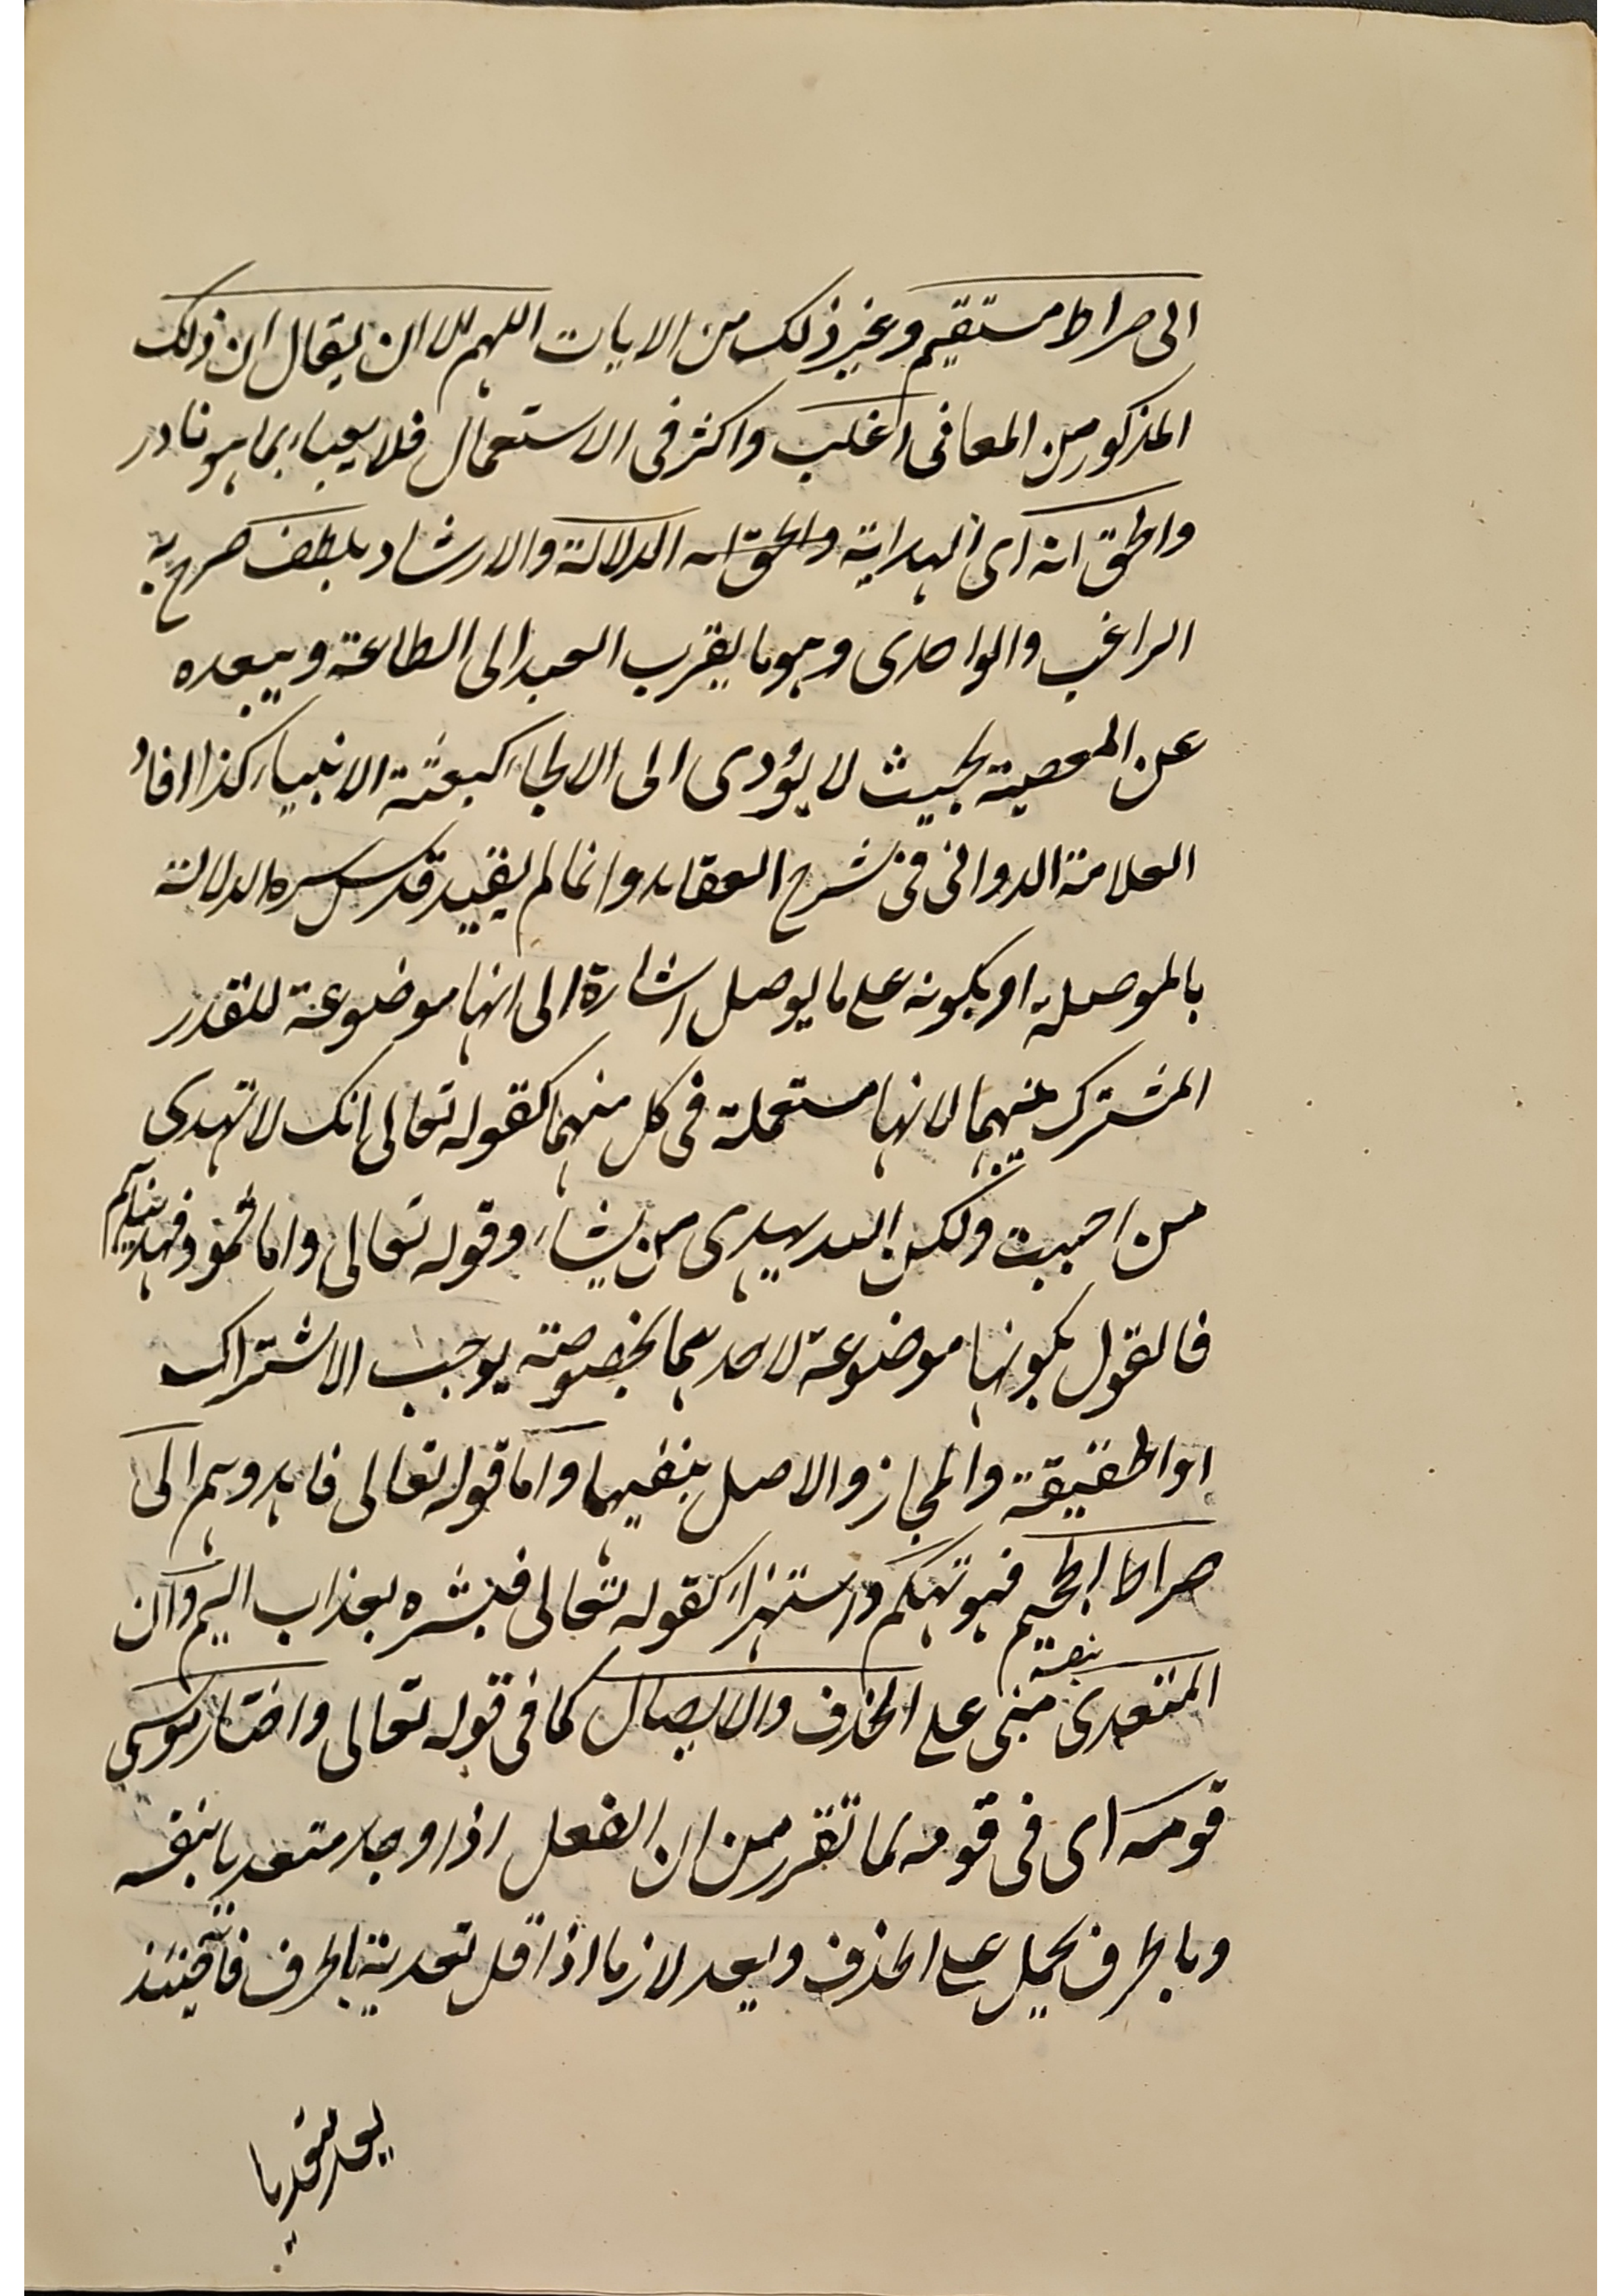 الى صراط مستقيم وغير ذلك من الايات اللهم الا ان يقال ان ذلك
المذكور من المعانى اغلب واكثر فى الاستعمال فلا يعباء بما هو نادر
والحق انه اى الهداية والحق انه الدلالة والارشاد بلطف صرح به
الراغب والواحدى وهو ما يقرب العبد الى الطاعة ويبعده
عن المعصية بحيث لا يؤدى الى الالجاء كبعثة الانبياء كذا افاد
العلامة الدوانى فى شرح العقايد وانما لم يقيد قدس سره الدلالة
بالموصلة او بكونه على ما يوصل اشارة الى انها موضوعة للقدر
المشترك بينهما لانها مستعملة فى كل منهما كقوله تعالى انك لا تهدى
من احببت ولكن الله يهدى من يشاء وقوله تعالى واما ثمود فهديناهم
فالقول بكونها موضوعة لاحدهما بخصوصه يوجب الاشتراك
او الحقيقة والمجاز والاصل ينفيهما واما قوله تعالى فاهدوهم الى
صراط الجحيم فهو تهكم واستهزاء كقوله تعالى فبشره بعذاب اليم وان
المتعدى بنفسه مبنى على الحذف والايصال كما فى قوله تعالى واختار موسى
قومه اى فى قومه لما تقرر من ان الفعل اذا وجد متعديا بنفسه
وبالحرف يحمل على الحذف ويعد لازما اذا قل تعديته بالحرف فانه حينئذ
يعد متعديا